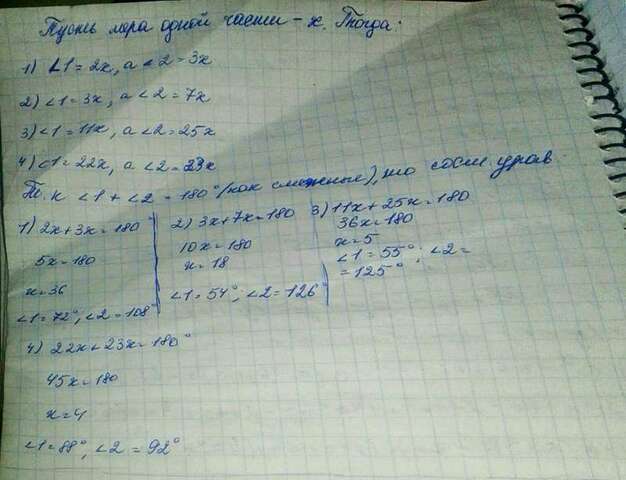 Пусть мера одной части - x. Тогда:
1) ∠1 = 2x, а ∠2 = 3x
2) ∠1 = 3x, а ∠2 = 7x
3) ∠1 = 11x, а ∠2 = 25x
4) ∠1 = 22x, а ∠2 = 23x
Т. к ∠1 + ∠2 = 180° (как смежные), то сост. урав.
1) 2x+3x=180°
5x=180
x=36
∠1=72°; ∠2=108°
2) 3x+7x=180
10x=180
x=18
∠1=54°; ∠2=126°
3) 11x+25x=180
36x=180
x=5
∠1=55°; ∠2=
=125°
4) 22x+23x=180°
45x=180
x=4
∠1=88°, ∠2=92°